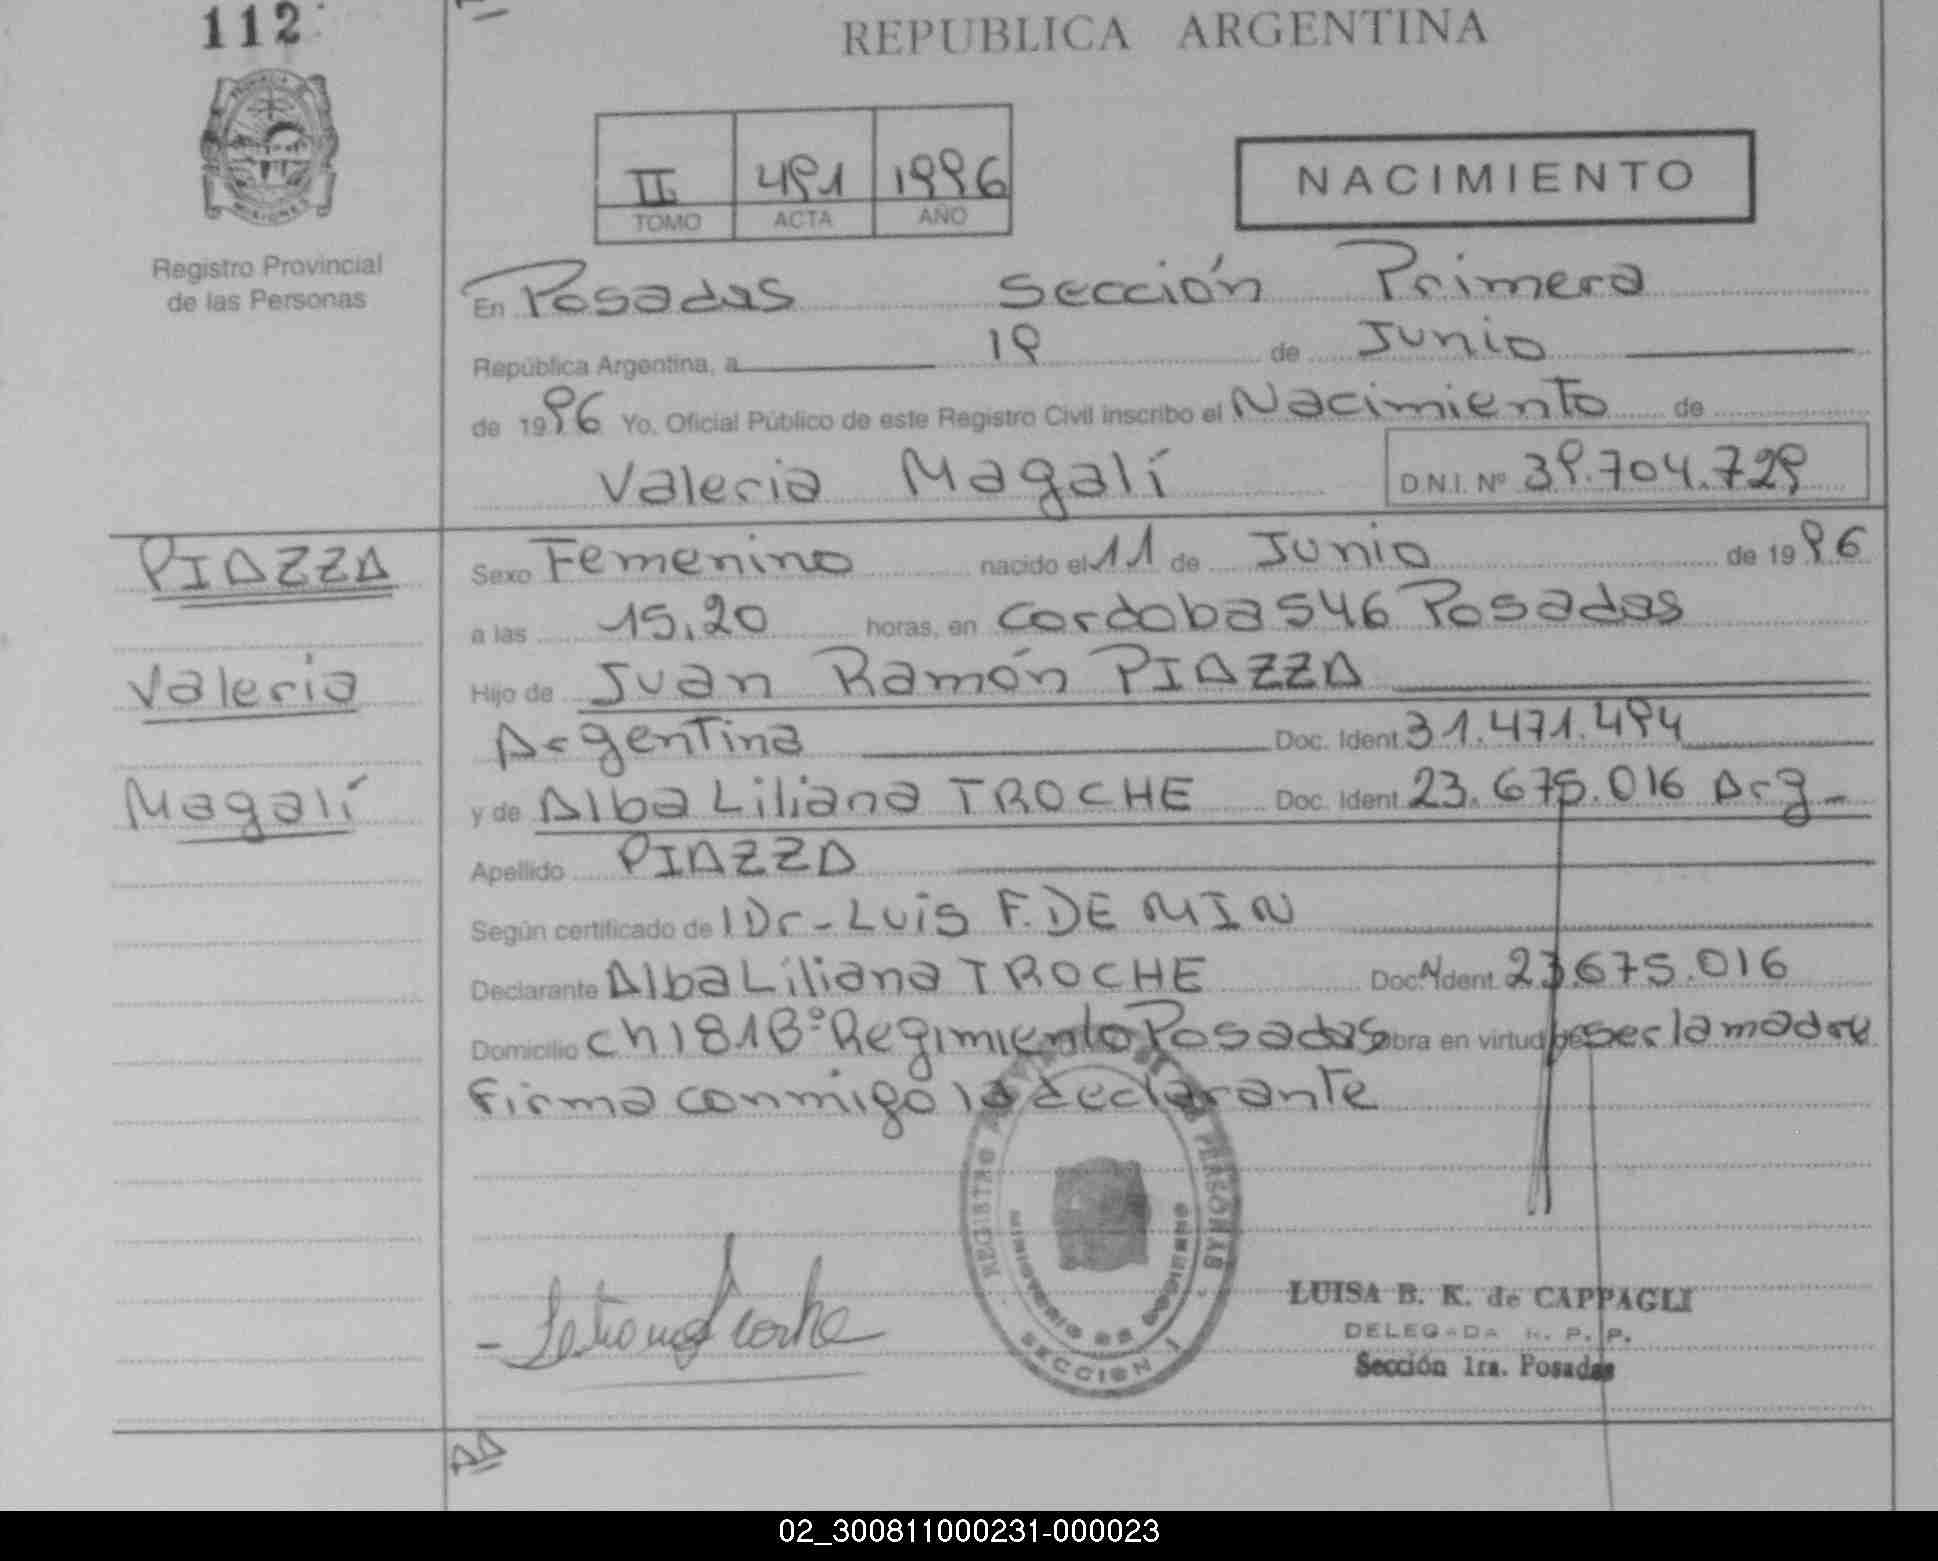 112
REPUBLICA ARGENTINA
PROVINCIA DE
MISIONES
Registro Provincial
de las Personas
II 491 1996
TOMO ACTA AÑO
NACIMIENTO
En Posadas Sección Primera
República Argentina, a 19 de Junio
de 1996 Yo, Oficial Público de este Registro Civil inscribo el Nacimiento de
Valeria Magalí D.N.I. Nº 39.704.729
PIAZZA
Valeria
Magalí
Sexo Femenino nacido el 11 de Junio de 1996
a las 15,20 horas, en Cordoba 546 Posadas
Hijo de Juan Ramón PIAZZA
Argentina Doc. Ident. 31.471.494
y de Alba Liliana TROCHE Doc. Ident. 23.675.016 Arg_
Apellido PIAZZA
Según certificado de Dr-Luis F. DE MIN
Declarante Alba Liliana TROCHE Doc. Ident. 23.675.016
Domicilio ch 181 Bº Regimiento Posadas obra en virtud de ser la madre
Firma conmigo la declarante
REGISTRO PERSONAS
MINISTERIO DE GOBIERNO
SECCION 1
LUISA B. K. de CAPPAGLI
DELEGADA R. P. P.
Sección 1ra. Posadas
02_300811000231-000023